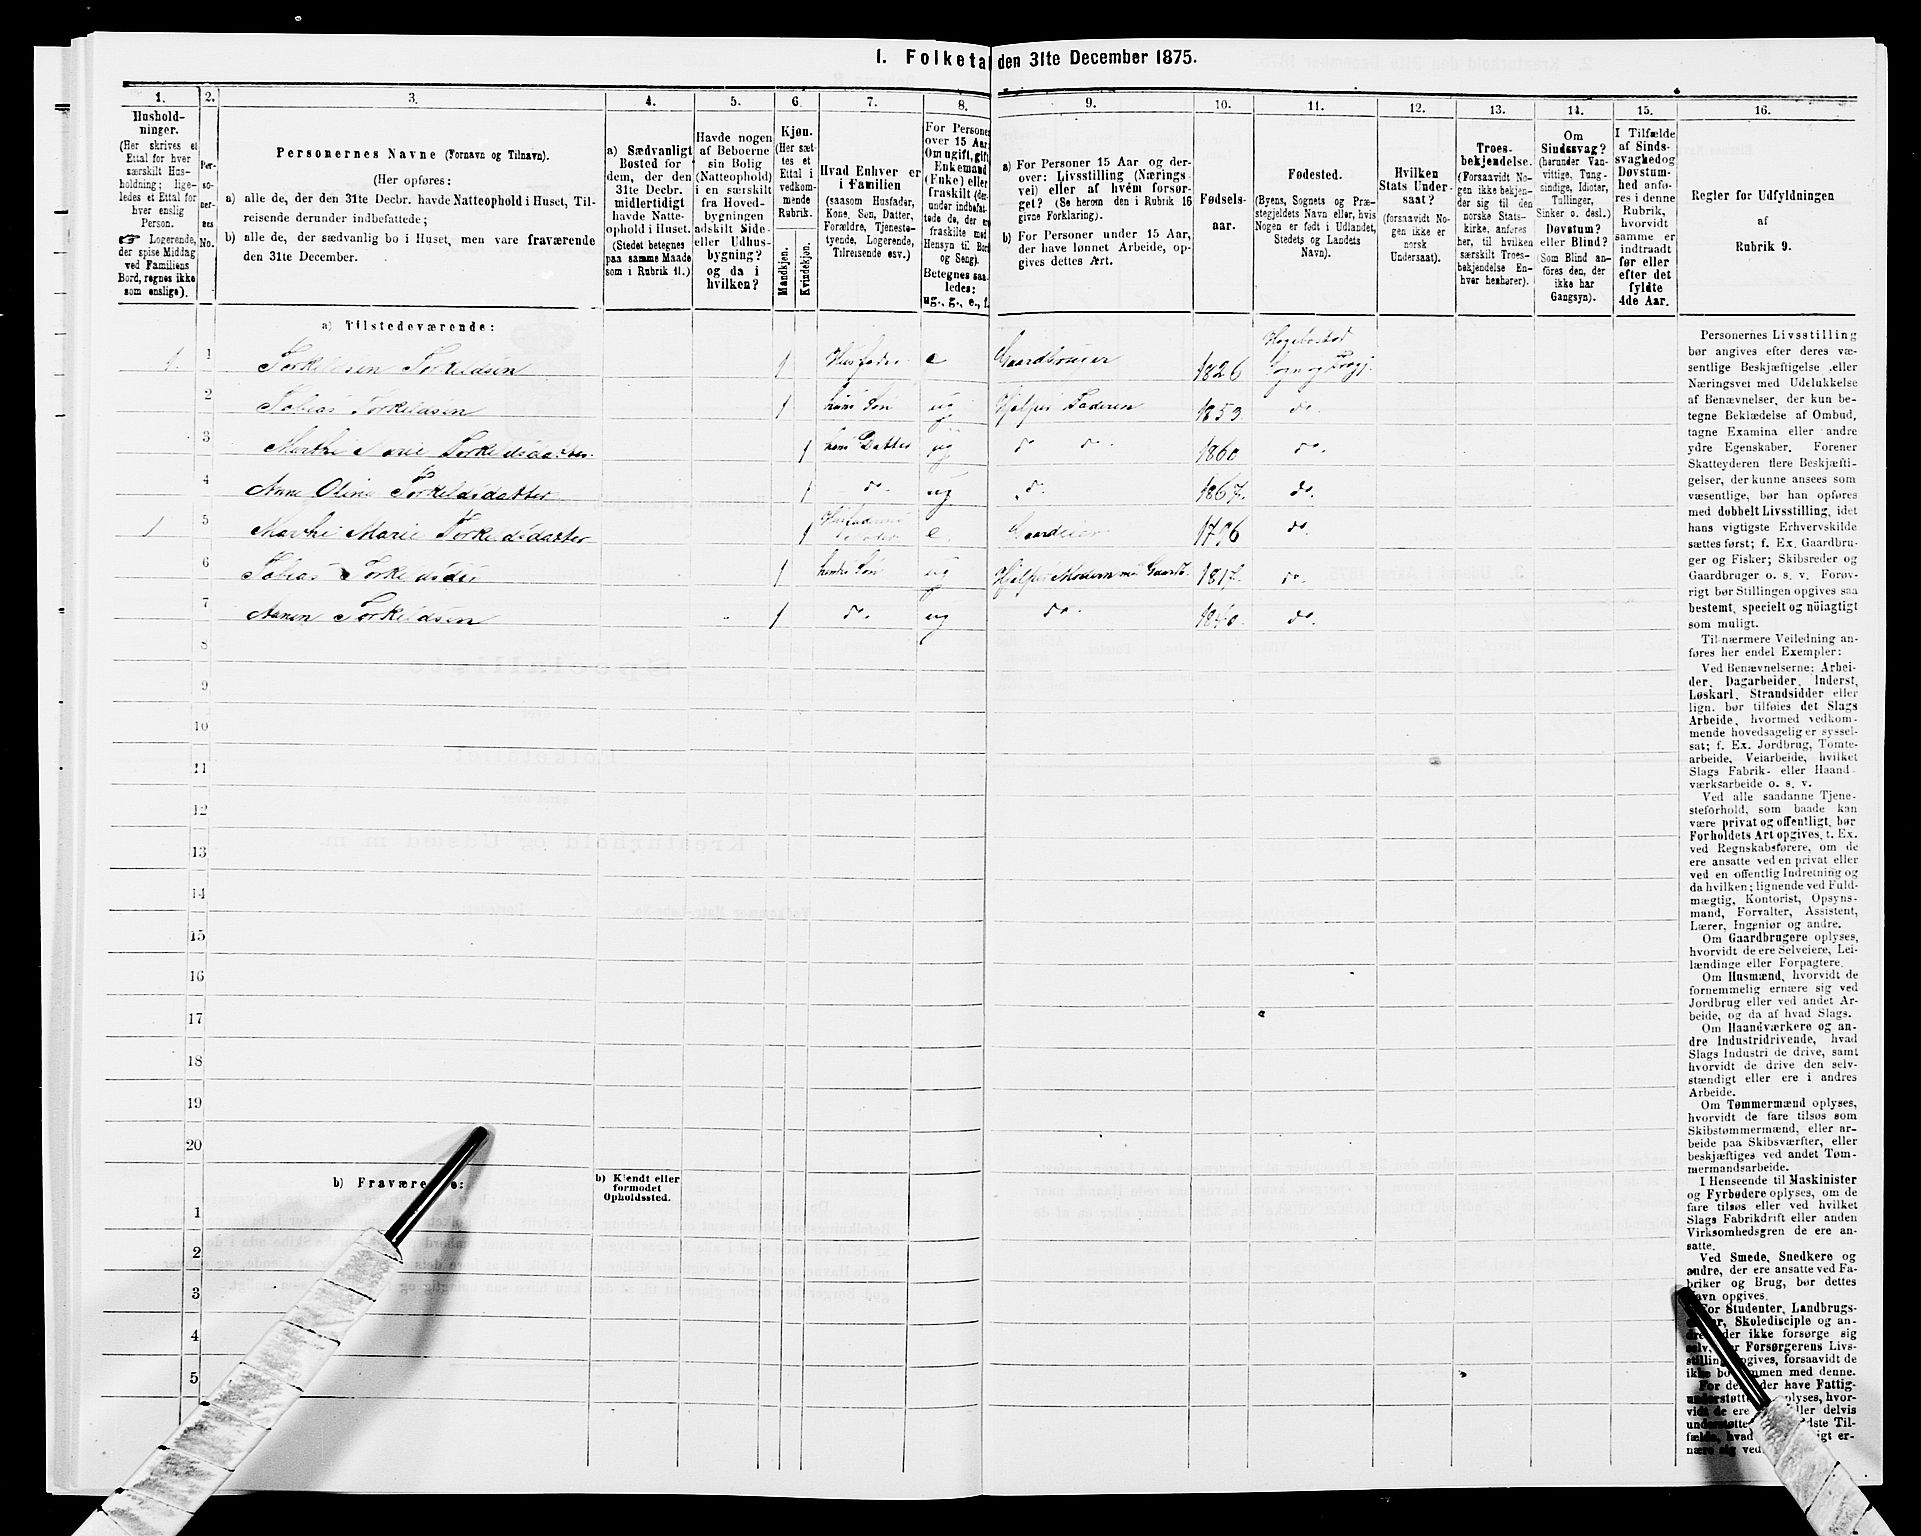 1. Folketal den 31te December 1875.
1.
2.
3.
4.
5.
6.
7.
8.
9.
10.
11.
12.
13.
14.
15.
16.
Hushold-
ninger.
(Her skrives et
Ettal for hver
særskilt Hus-
holdning; lige-
ledes et Ettal for
hver enslig
Person.
☞ Logerende,
der spise Middag
ved Familiens
Bord, regnes ikke
som enslige).
Per-
so-
ner-
nes
No.
Personernes Navne (Fornavn og Tilnavn).
(Her opføres:
a) alle de, der den 31te Decbr. havde Natteophold i Huset, Til-
reisende derunder indbefattede;
b) alle de, der sædvanlig bo i Huset, men vare fraværende
den 31te December.
a) Sædvanligt
Bosted for
dem, der den
31te Decbr.
midlertidigt
havde Natte-
ophold i Huset.
(Stedet betegnes
paa samme Maade
som i Rubrik 11.)
Havde nogen
af Beboerne
sin Bolig
(Natteophold)
i en særskilt
fra Hoved-
bygningen
adskilt Side-
eller Udhus-
bygning?
og da i
hvilken?
Kjøn.
(Her sæt-
tes et
Ettal i
vedkom-
mende
Rubrik.
Mandkjøn.
Kvindekjøn.
Hvad Enhver er
i Familien
(saasom Husfader,
Kone, Søn, Datter,
Forældre, Tjeneste-
tyende, Logerende,
Tilreisende osv.)
For Personer
over 15 Aar:
Om ugift, gift,
Enkemand
(Enke) eller
fraskilt (der-
under indbefat-
tede de, der ere
fraskilte med
Hensyn til Bord
og Seng).
Betegnes saa-
ledes:
ug., g., e., f.
a) For Personer 15 Aar og der-
over: Livsstilling (Nærings-
vei) eller af hvem forsør-
get? (Se herom den i Rubrik 16
givne Forklaring).
b) For Personer under 15 Aar,
der have lønnet Arbeide, op-
gives dettes Art.
Fødsels-
aar.
Fødested.
(Byens, Sognets og Præ-
stegjeldets Navn eller, hvis
Nogen er født i Udlandet,
Stedets og Landets
Navn).
Hvilken
Stats Under-
saat?
(forsaavidt No-
gen ikke er
norsk
Undersaat).
Troes-
bekjendelse.
(Forsaavidt No-
gen ikke bekjen-
der sig til den
norske Stats-
kirke, anføres
her, til hvilken
særskilt Troes-
bekjendelse En-
hver henhører).
Om
Sindssvag?
(herunder Van-
vittige, Tung-
sindige, Idioter,
Tullinger,
Sinker o. desl.)
Døvstum?
eller Blind?
(Som Blind an-
føres den, der
ikke har
Gangsyn).
I Tilfælde
af Sinds-
svaghed og
Døvstum-
hed anfø-
res i denne
Rubrik,
hvorvidt
samme er
indtraadt
før eller
efter det
fyldte
4de Aar.
Regler for Udfyldningen
af
Rubrik 9.
a) Tilstedeværende:
1 1 Torkildsen Torkeldsen 1 Husfader e Gaardbruger 1826 Hægebostad Sogn og Prægj.
2 Tobias Torkeldsen 1 hans Søn ug Hjelper Faderen 1853 do.
3 Marthe Marie Torkeldsdatter 1 hans Datter ug do do. 1860 do.
4 Anne Oline Torkeldsdatter 1 do. ug do. 1867. do.
1 5 Marthe Marie Torkeldsdatter 1 e. Gaardeier 1796 do.
6 Tobias Torkeldsen 1 hendes Søn ug Hjelper Modern med Gaardb. 1817. do.
7 Aanen Torkeldsen 1 do. ug do. 1840. do.
8
9
10
11
12
13
14
15
16
17
18
19
20
b) Fraværende:
b) Kjendt eller
formodet
Opholdssted.
1
2
3
4
5
Personernes Livsstilling
bør angives efter deres væ-
sentlige Beskjæftigelse eller
Næringsvei med Udelukkelse
af Benævnelser, der kun be-
tegne Beklædelse af Ombud,
tagne Examina eller andre
ydre Egenskaber. Forener
Skatteyderen flere Beskjæfti-
gelser, der kunne ansees som
væsentlige, bør han opføres
med dobbelt Livsstilling, idet
hans vigtigste Erhvervskilde
sættes først; f. Ex. Gaardbru-
ger og Fisker; Skibsreder og
Gaardbruger o. s. v. Forøv-
rigt bør Stillingen opgives saa
bestemt, specielt og nöiagtigt
som muligt.
Til nærmere Veiledning an-
føres her endel Exempler:
Ved Benævnelserne: Arbei-
der, Dagarbeider, Inderst,
Løskarl, Strandsidder eller
lign. bør tilføies det Slags
Arbeide, hvormed vedkom-
mende hovedsagelig er syssel-
sat; f. Ex. Jordbrug, Tomte-
arbeide, Veiarbeide, hvilket
Slags Fabrik- eller Haand-
værksarbeide o. s. v.
Ved alle saadanne Tjene-
steforhold, som baade kan
være privat og offentligt, bør
Forholdets Art opgives, t. Ex.
ved Regnskabsførere, om de
ere ansatte ved en privat eller
ved en offentlig Indretning og
da hvilken; lignende ved Fuld-
mægtig, Kontorist, Opsyns-
mand, Forvalter, Assistent,
Lærer, Ingeniør og andre.
Om Gaardbrugere oplyses,
hvorvidt de ere Selveiere, Lei-
lændinge eller Forpagtere.
Om Husmænd, hvorvidt de
fornemmelig ernære sig ved
Jordbrug eller ved andet Ar-
beide, og da af hvad Slags.
Om Haandværkere og an-
dre Industridrivende, hvad
Slags Industri de drive, samt
hvorvidt de drive den selv-
stændigt eller ere i andres
Arbeide.
Om Tømmermænd oplyses,
hvorvidt de fare tilsøs som
Skibstømmermænd, eller ar-
beide paa Skibsværfter, eller
beskjæftiges ved andet Tøm-
mermandsarbeide.
I Henseende til Maskinister
og Fyrbødere oplyses, om de
fare tilsøs eller ved hvilket
Slags Fabrikdrift eller anden
Virksomhedsgren de ere an-
satte.
Ved Smede, Snedkere og
andre, der ere ansatte ved Fa-
briker og Brug, bør dettes
Navn opgives.
For Studenter, Landbrugs-
Skoledisciple og an-
der ikke forsørge sig
selv, Forsørgerens Livs-
stilling opgives, forsaavidt de
ikke bo sammen med denne.
For de, der have Fattig-
understøttelse, oplyses, hvor-
vidt de ere eller delvis